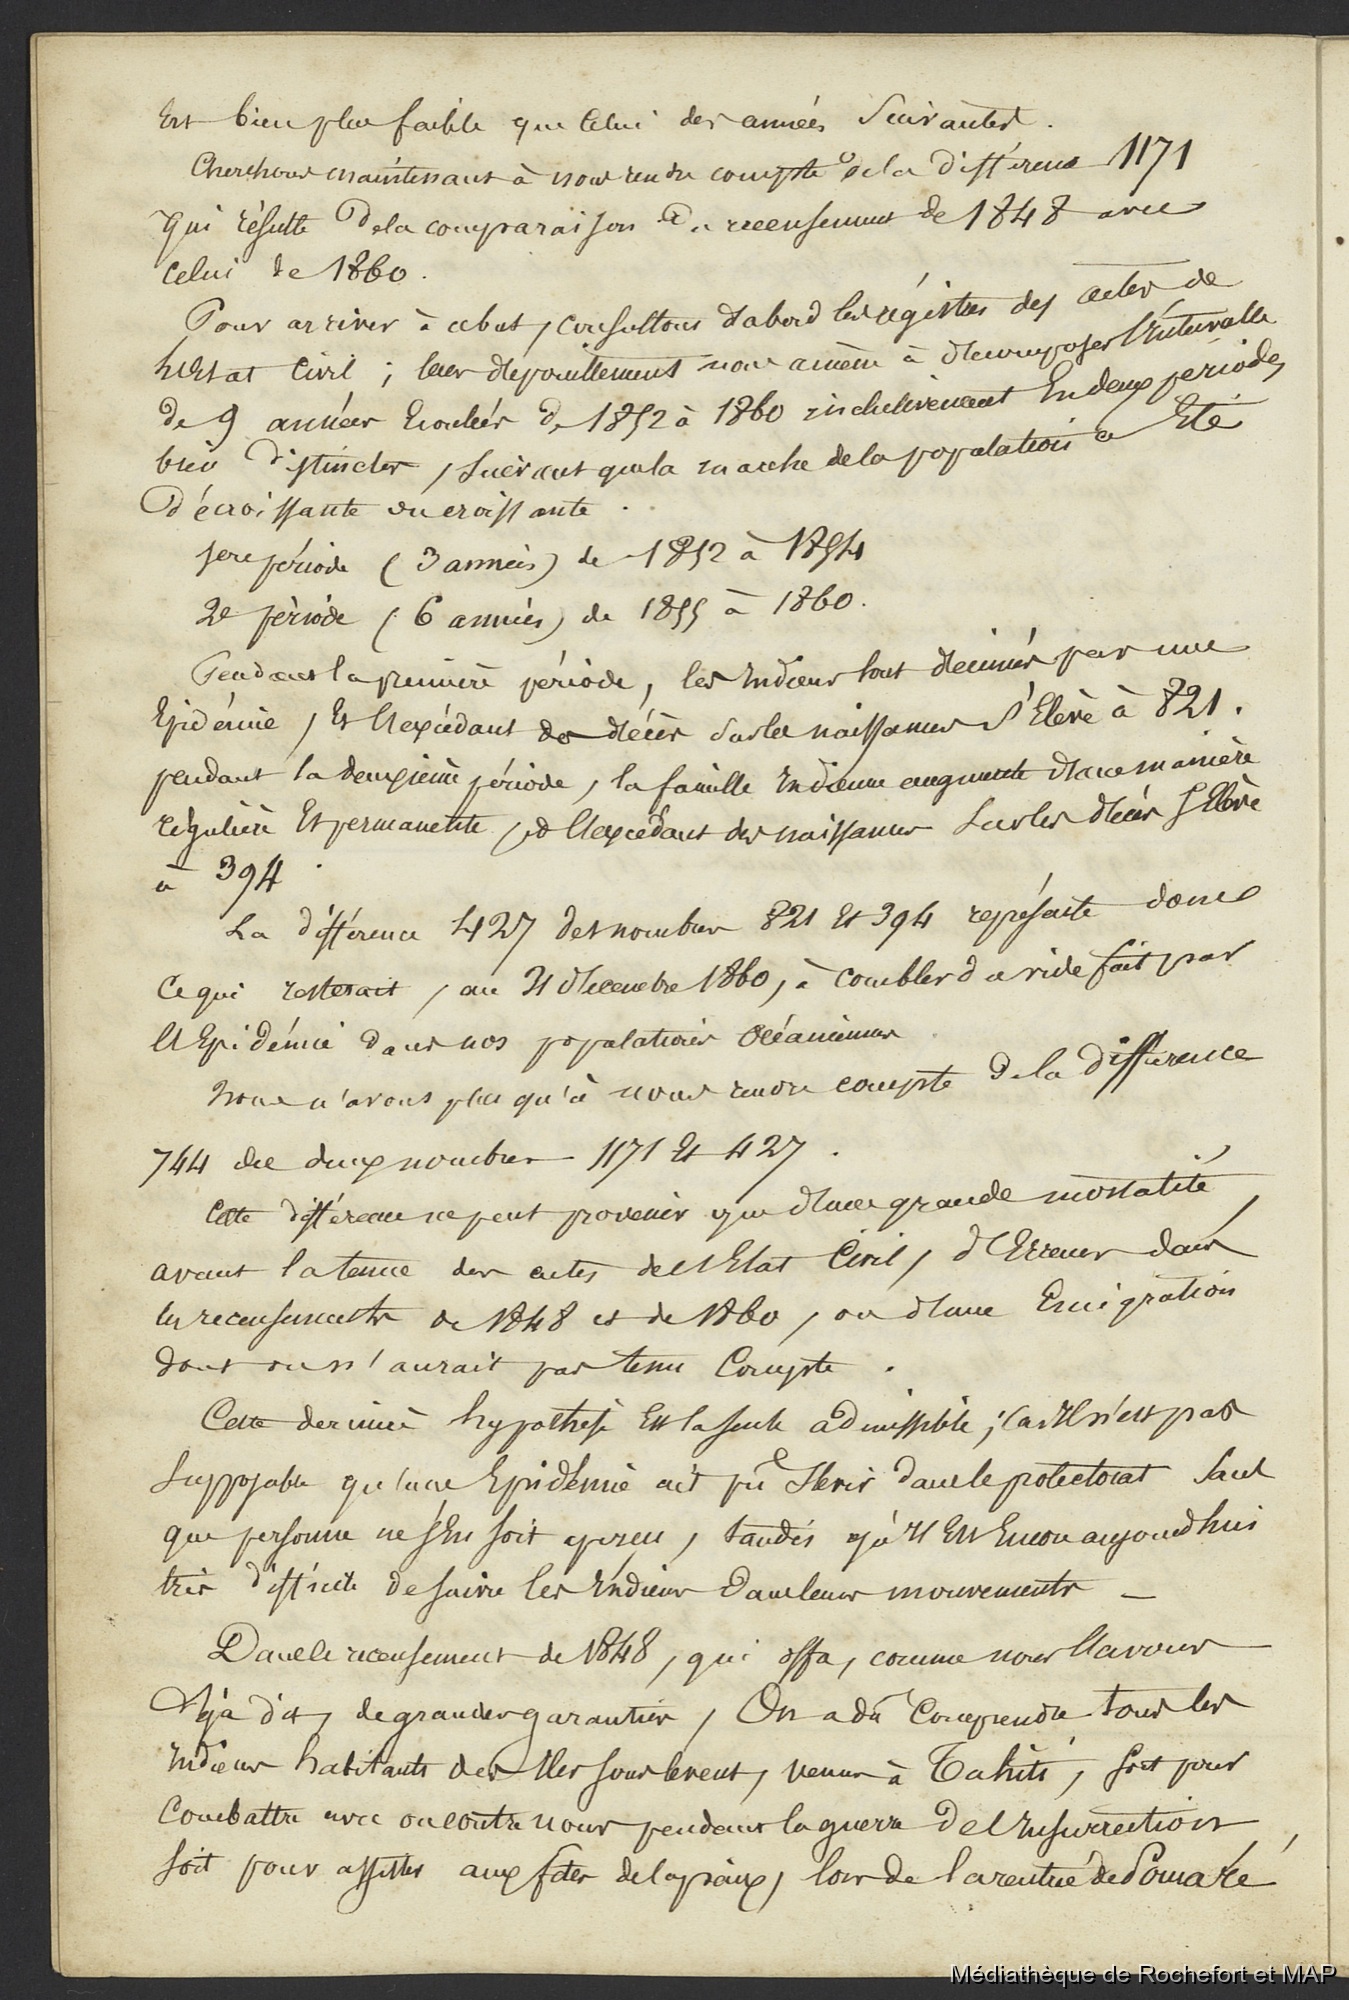 Est bien plus faible que celui des années suivantes.
Cherchons maintenant à nous rendre compte de la différence 1171
qui résulte de la comparaison du recensement de 1848 avec
celui de 1860.
Pour arriver à ce but, consultons d'abord les régistres des actes de
l'Etat Civil ; leur dépouillement nous amène à décomposer l'Intervalle
de 9 années Ecoulées de 1852 à 1860 inclusivement En deux périodes
bien distinctes, suivant que la marche de la population a Eté
Décroissante ou croissante.
1ere période (3 années) de 1852 à 1854
2e période (6 années) de 1855 à 1860.
Pendant la première période, les Indiens sont décimés par une
Epidémie, Et l'excédant des décès sur les naissances s'Elève à 821.
pendant la deuxième période, la famille Indienne augmente d'une manière
régulière Et permanente, et l'excédant des naissances sur les décès s'Elève
à 394.
La différence 427 des nombres 821 Et 394 représente donc
ce qui resterait, au 31 décembre 1860, à combler du vide fait par
l'Epidémie dans nos populations Océaniennes.
Nous n'avons plus qu'à nous rendre compte de la différence
744 des deux nombres 1171 Et 427.
Cette différence ne peut provenir que d'une grande mortalité,
avant la tenue des actes de l'Etat Civil, d'Erreurs dans
les recensements de 1848 et de 1860, ou d'une Emigration
dont on n'aurait pas tenu Compte.
Cette dernière hypothèse Est la seule admissible ; car Il n'est pas
supposable qu'une Epidémie ait pu sévir dans le protectorat sans
que personne ne s'En soit aperçu, tandis qu'Il Est Encore aujourd'hui
très difficile de suivre les Indiens dans leurs mouvements —
Dans le recensement de 1848, qui offre, comme nous l'avons
déjà dit, de grandes garanties, On a dû Comprendre tous les
Indiens habitants des Iles sous le vent, venus à Tahiti, soit pour
Combattre avec ou contre nous pendant la guerre de l'Insurrection,
soit pour assister aux fêtes de la paix, lors de la rentrée de Pomaré
Médiathèque de Rochefort et MAP